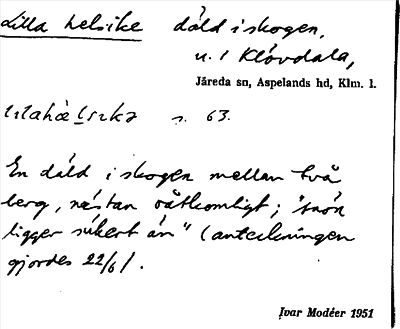 Lilla helvike dåld i skogen,
u. / Klövdala,
Järeda sn, Aspelands hd, Klm. l.
s. 63.
En dåld i skogen mellan två
berg, nästan oåtkomligt; "snön
ligger säkert än" (anteckningen
gjordes 22/6).
Ivar Modéer 1951